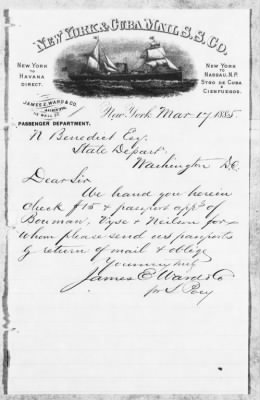 NEW YORK & CUBA MAIL S.S. CO.
NEW YORK
TO
HAVANA
DIRECT.
NEW YORK
TO
NASSAU, N.P.
STGO DE CUBA
&
CIENFUEGOS.
JAMES E. WARD & CO.
PASSENGER DEPARTMENT.
New York Mar. 17 1885
N Benedict Esq,
State Depart.
Washington D.C.
Dear Sir
We hand you herein
check $15 & passport appls of
Bowman, Vyse & Neilson for
whom please send us passports
by return of mail & oblige
Yours truly
James E Ward & Co
pr